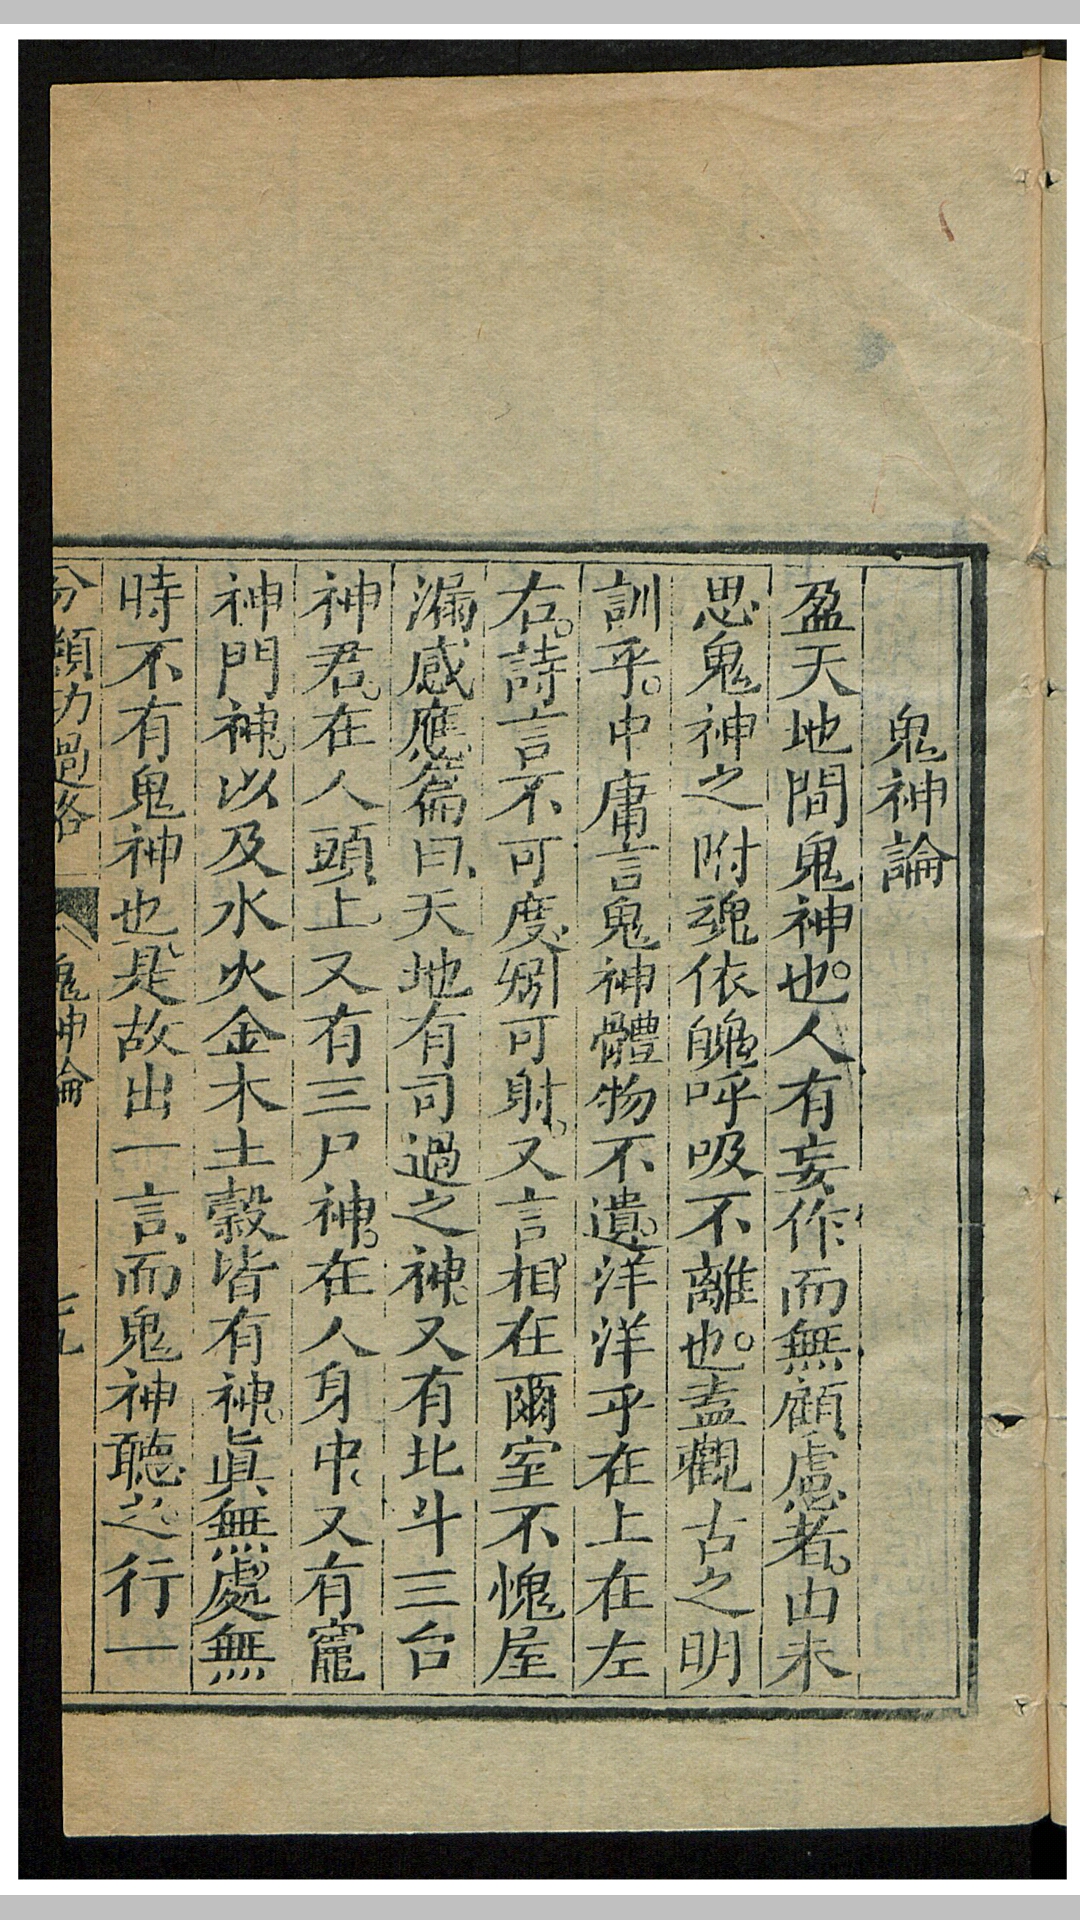 鬼神論
盈天地間鬼神也。人有妄作、而無顧慮者。由未
思鬼神之附魂依魄呼吸不離也。盍觀古之明
訓乎。中庸言鬼神體物不遺。洋洋乎在上在左
右。詩言不可度、矧可射。又言相在爾室不愧屋
漏感應篇曰、天地有司過之神、又有北斗三台
神君、在人頭上、又有三尸神。在人身中、又有竈
神門神、以及水火金木土穀皆有神。眞無處無
時不有鬼神也、是故出一言、而鬼神聽之、行一
分類功過格 鬼神論